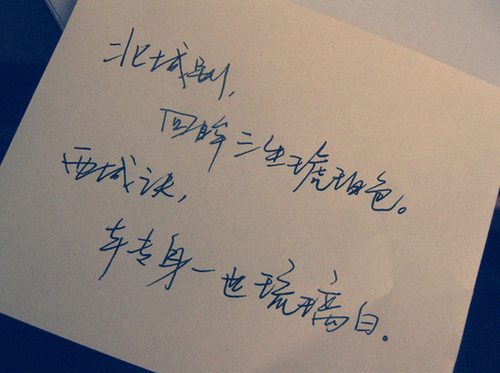 北城别，
回眸三生琥珀色。
西城诀，
转身一世琉璃白。